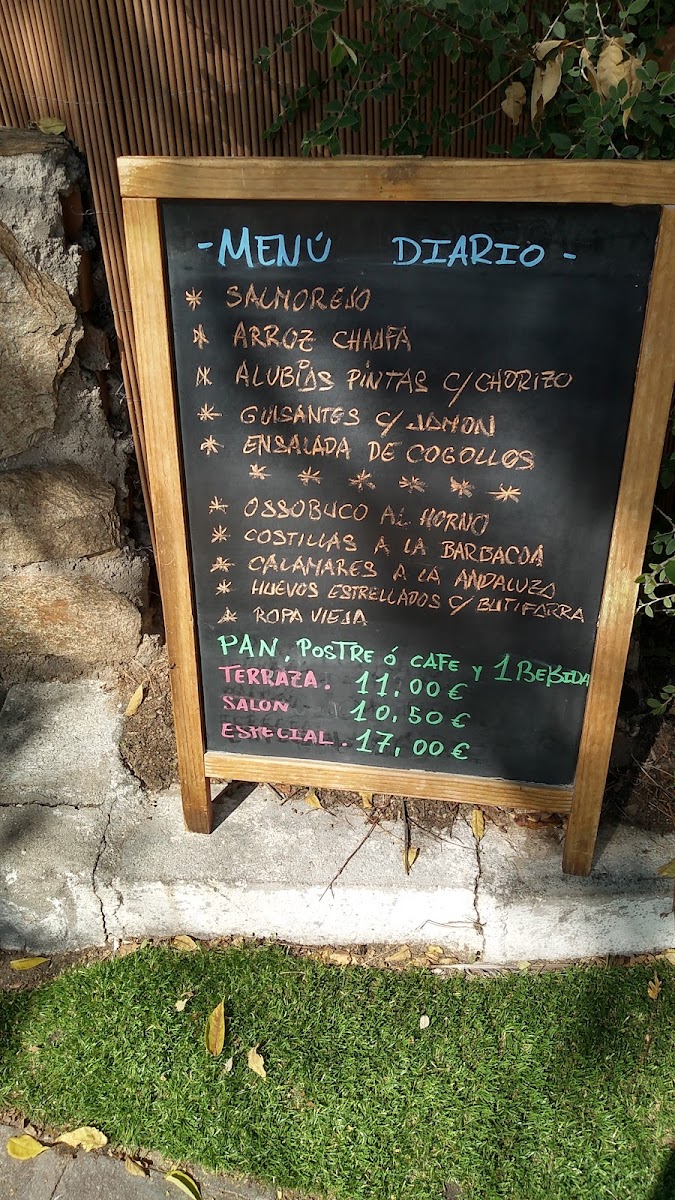 - MENÚ DIARIO -
* SALMOREJO
* ARROZ CHAUFA
* ALUBIAS PINTAS C/ CHORIZO
* GUISANTES C/ JAMON
* ENSALADA DE COGOLLOS
* * * * * *
* OSSOBUCO AL HORNO
* COSTILLAS A LA BARBACOA
* CALAMARES A LA ANDALUZA
* HUEVOS ESTRELLADOS C/ BUTIFARRA
* ROPA VIEJA
PAN, POSTRE ó CAFE y 1 BEBIDA
TERRAZA. 11,00 €
SALON 10,50 €
ESPECIAL. 17,00 €